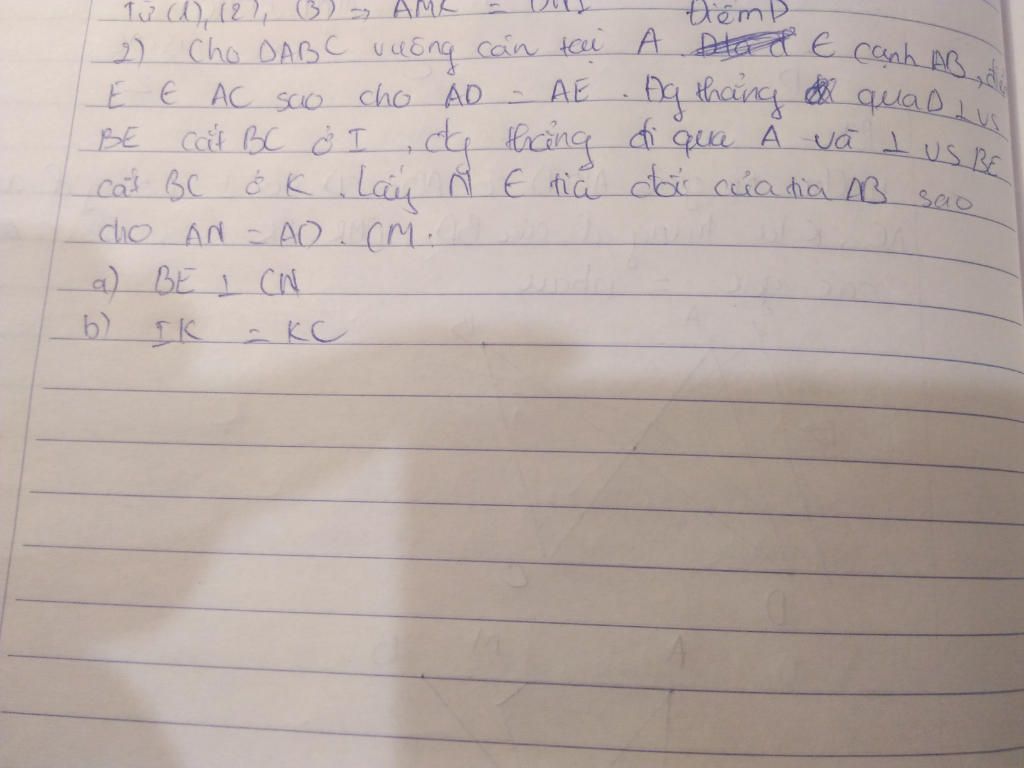 Từ (1), (2), (3) => AMK =
Điểm D
2) Cho ΔABC vuông cân tại A ∈ cạnh AB,
E ∈ AC sao cho AD = AE. Đg thẳng qua D ⊥ vs
BE cắt BC ở I, đg thẳng đi qua A và ⊥ vs BE
cắt BC ở K. Lấy N ∈ tia đối của tia AB sao
cho AN = AD. CM:
a) BE ⊥ CN
b) IK = KC